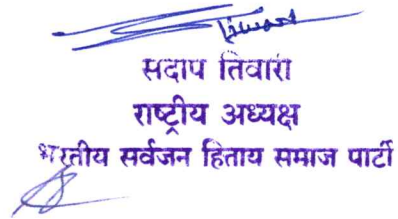 Tiwari
सदाप तिवारी
राष्ट्रीय अध्यक्ष
भारतीय सर्वजन हिताय समाज पार्टी